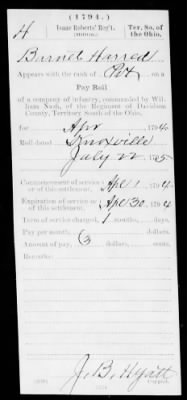 (1794.)
4 Isaac Roberts' Reg't. Ter. So. of
the Ohio.
Burnell Harred
Appears with the rank of Pvt on a
Pay Roll
of a company of infantry, commanded by Wil-
liam Nash, of the Regiment of Davidson
County, Territory South of the Ohio,
for Apr 1794
Roll dated Knoxville
July 22 1795
Commencement of service or of this settlement, Apl 1, 1794.
Expiration of service or of this settlement, Apl 30, 1794
Term of service charged, 1 months, days.
Pay per month, dollars.
Amount of pay, 3 dollars, cents.
Remarks:
J. B. Hyatt
Copyist.